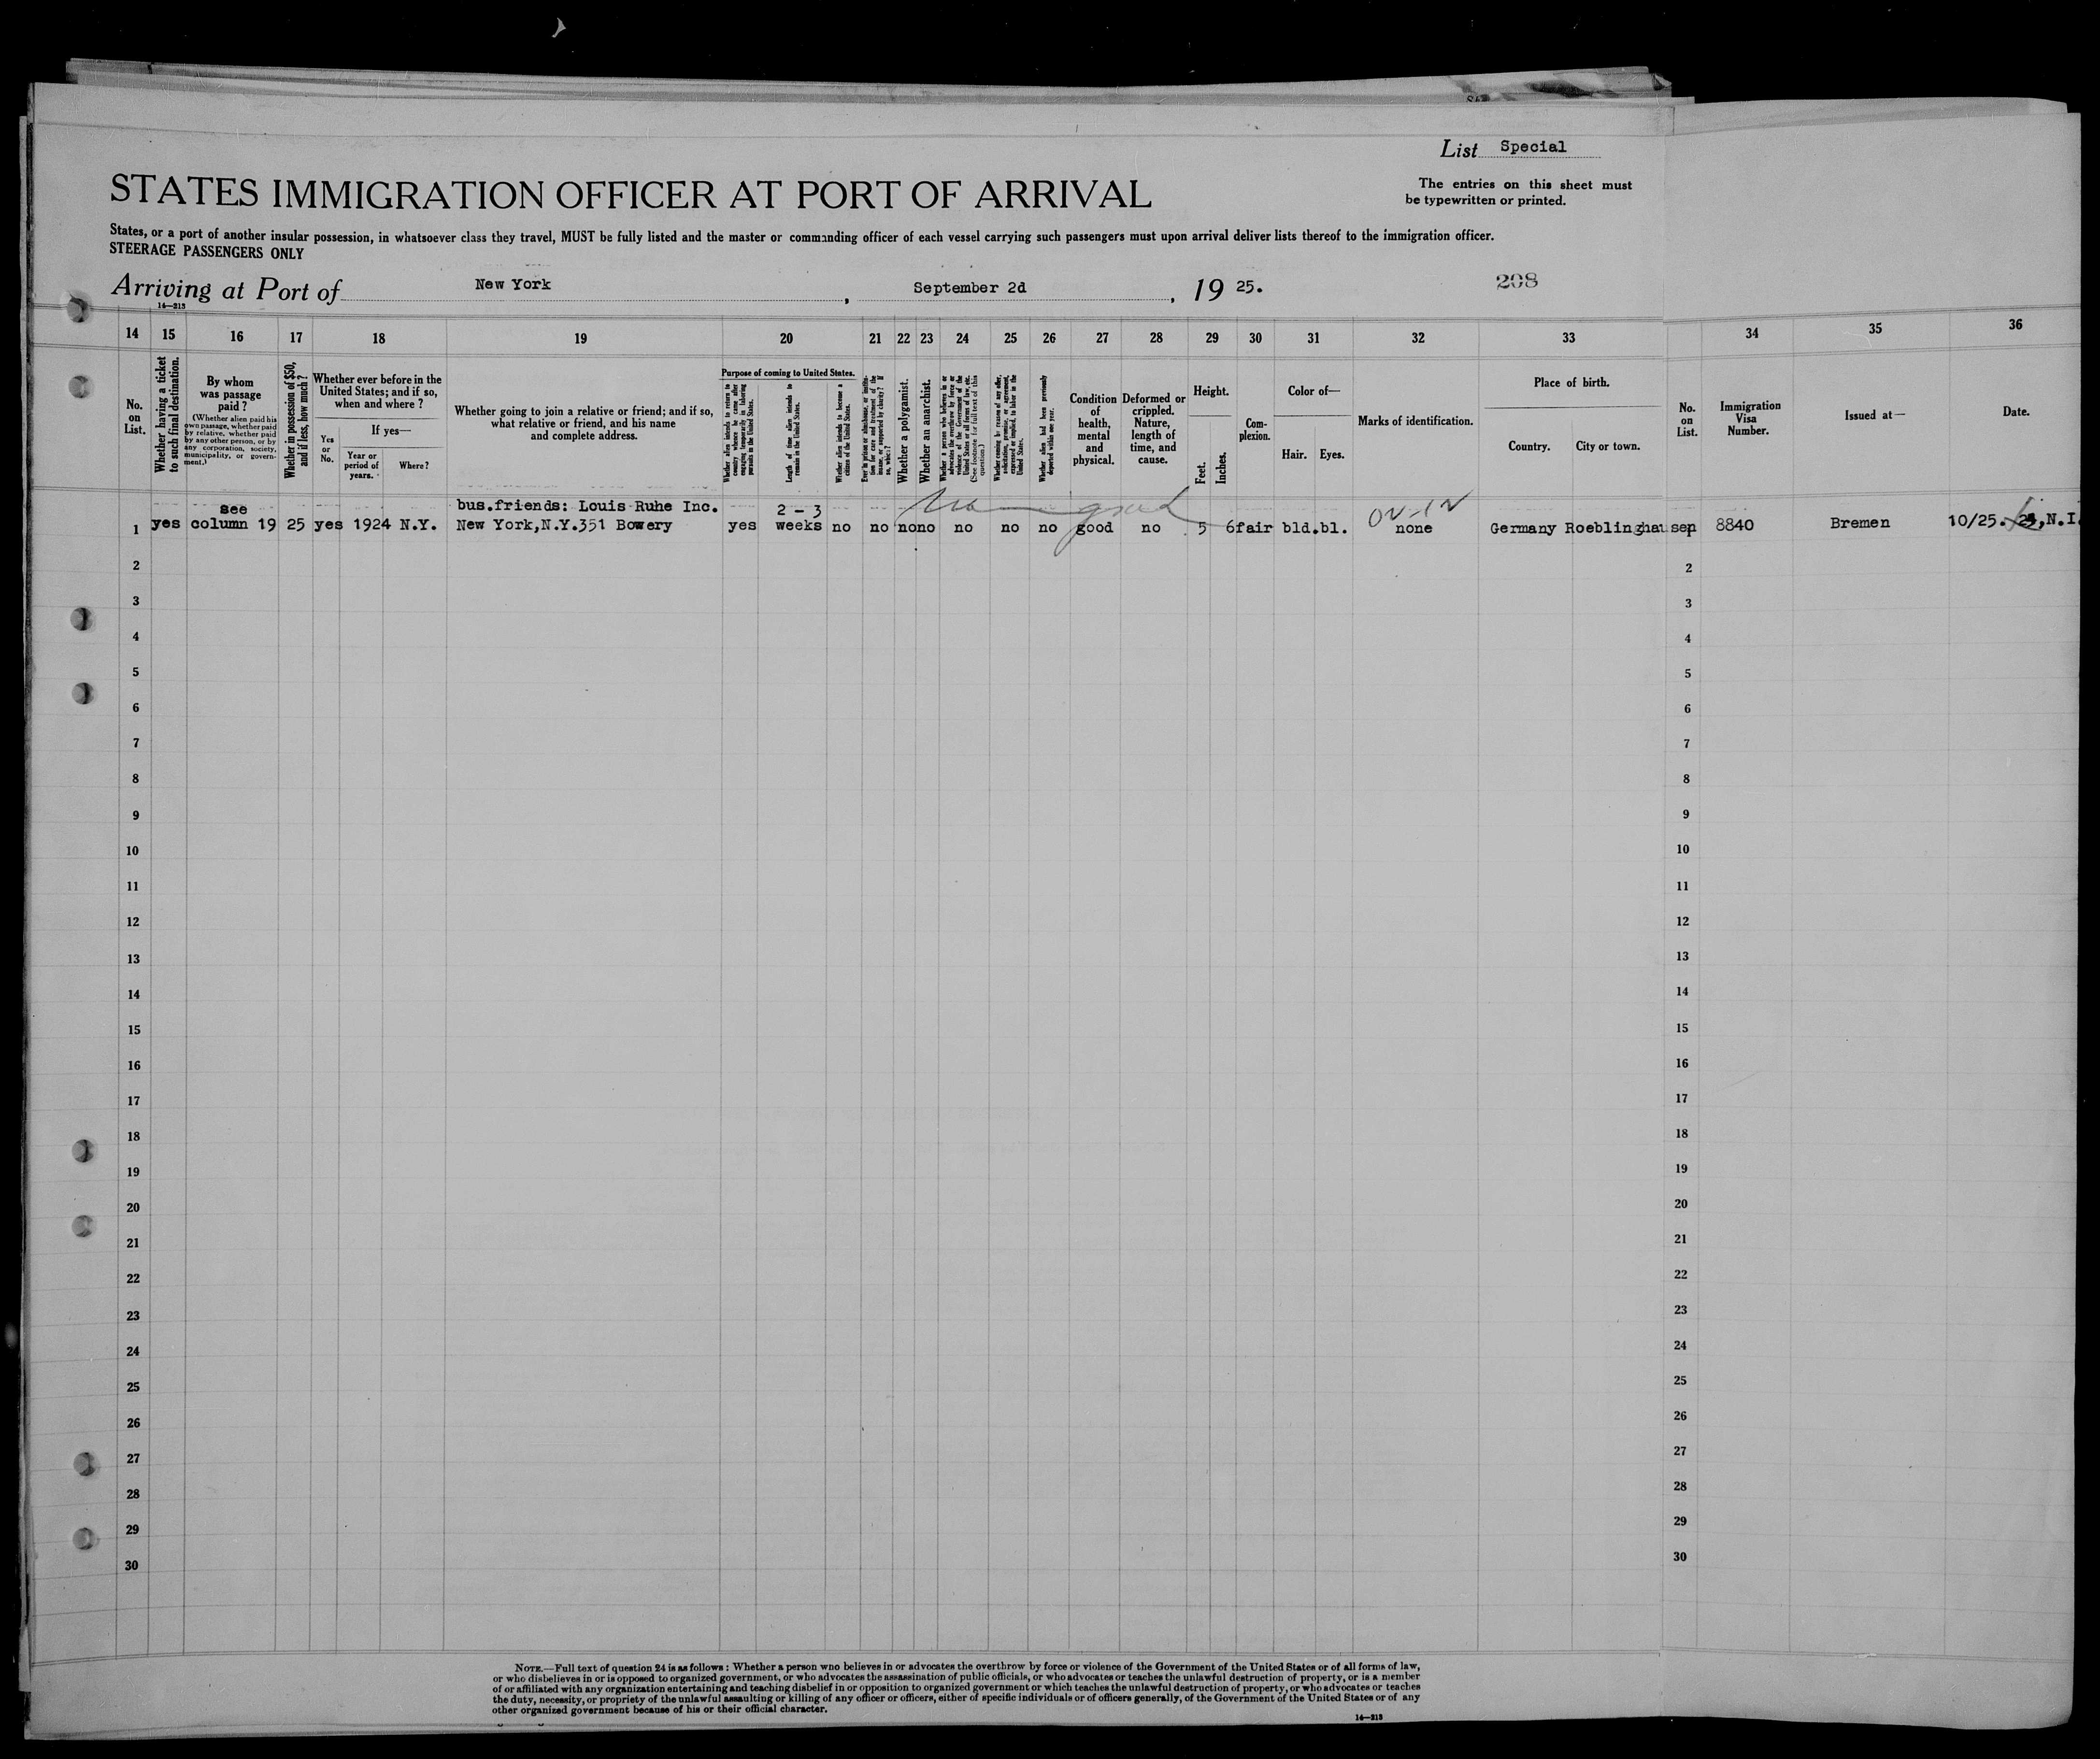 List Special
STATES IMMIGRATION OFFICER AT PORT OF ARRIVAL
The entries on this sheet must
be typewritten or printed.
States, or a port of another insular possession, in whatsoever class they travel, MUST be fully listed and the master or commanding officer of each vessel carrying such passengers must upon arrival deliver lists thereof to the immigration officer.
STEERAGE PASSENGERS ONLY
Arriving at Port of New York, September 2d, 19 25.
208
14—213
14 15 16 17 18 19 20 21 22 23 24 25 26 27 28 29 30 31 32 33 34 35 36
No. on List.
Whether having a ticket to such final destination.
By whom was passage paid?
(Whether alien paid his own passage, whether paid by relative, whether paid by any other person, or by any corporation, society, municipality, or government.)
Whether in possession of $50, and if less, how much?
Whether ever before in the United States; and if so, when and where?
Yes or No.
If yes—
Year or period of years.
Where?
Whether going to join a relative or friend; and if so, what relative or friend, and his name and complete address.
Purpose of coming to United States.
Whether alien intends to return to country whence he came after engaging temporarily in laboring pursuits in the United States.
Length of time alien intends to remain in the United States.
Whether alien intends to become a citizen of the United States.
Ever in prison or almshouse, or institution for care and treatment of the insane, or supported by charity? If so, which?
Whether a polygamist.
Whether an anarchist.
Whether a person who believes in or advocates the overthrow by force or violence of the Government of the United States or of all forms of law, etc. (See footnote for full text of this question.)
Whether coming by reason of any offer, solicitation, promise, or agreement, expressed or implied, to labor in the United States.
Whether alien had been previously deported within one year.
Condition of health, mental and physical.
Deformed or crippled. Nature, length of time, and cause.
Height.
Feet. Inches.
Complexion.
Color of—
Hair. Eyes.
Marks of identification.
Place of birth.
Country. City or town.
No. on List.
Immigration Visa Number.
Issued at—
Date.
see bus.friends: Louis Ruhe Inc. 2 - 3 no good
1 yes column 19 25 yes 1924 N.Y. New York,N.Y.351 Bowery yes weeks no no no no no no no good no 5 6 fair bld. bl. none Germany Roeblinghausen 1 8840 Bremen 10/25. 24, N.I.
2 2
3 3
4 4
5 5
6 6
7 7
8 8
9 9
10 10
11 11
12 12
13 13
14 14
15 15
16 16
17 17
18 18
19 19
20 20
21 21
22 22
23 23
24 24
25 25
26 26
27 27
28 28
29 29
30 30
NOTE.—Full text of question 24 is as follows: Whether a person who believes in or advocates the overthrow by force or violence of the Government of the United States or of all forms of law,
or who disbelieves in or is opposed to organized government, or who advocates the assassination of public officials, or who advocates or teaches the unlawful destruction of property, or is a member
of or affiliated with any organization entertaining and teaching disbelief in or opposition to organized government or which teaches the unlawful destruction of property, or who advocates or teaches
the duty, necessity, or propriety of the unlawful assaulting or killing of any officer or officers, either of specific individuals or of officers generally, of the Government of the United States or of any
other organized government because of his or their official character.
14—213